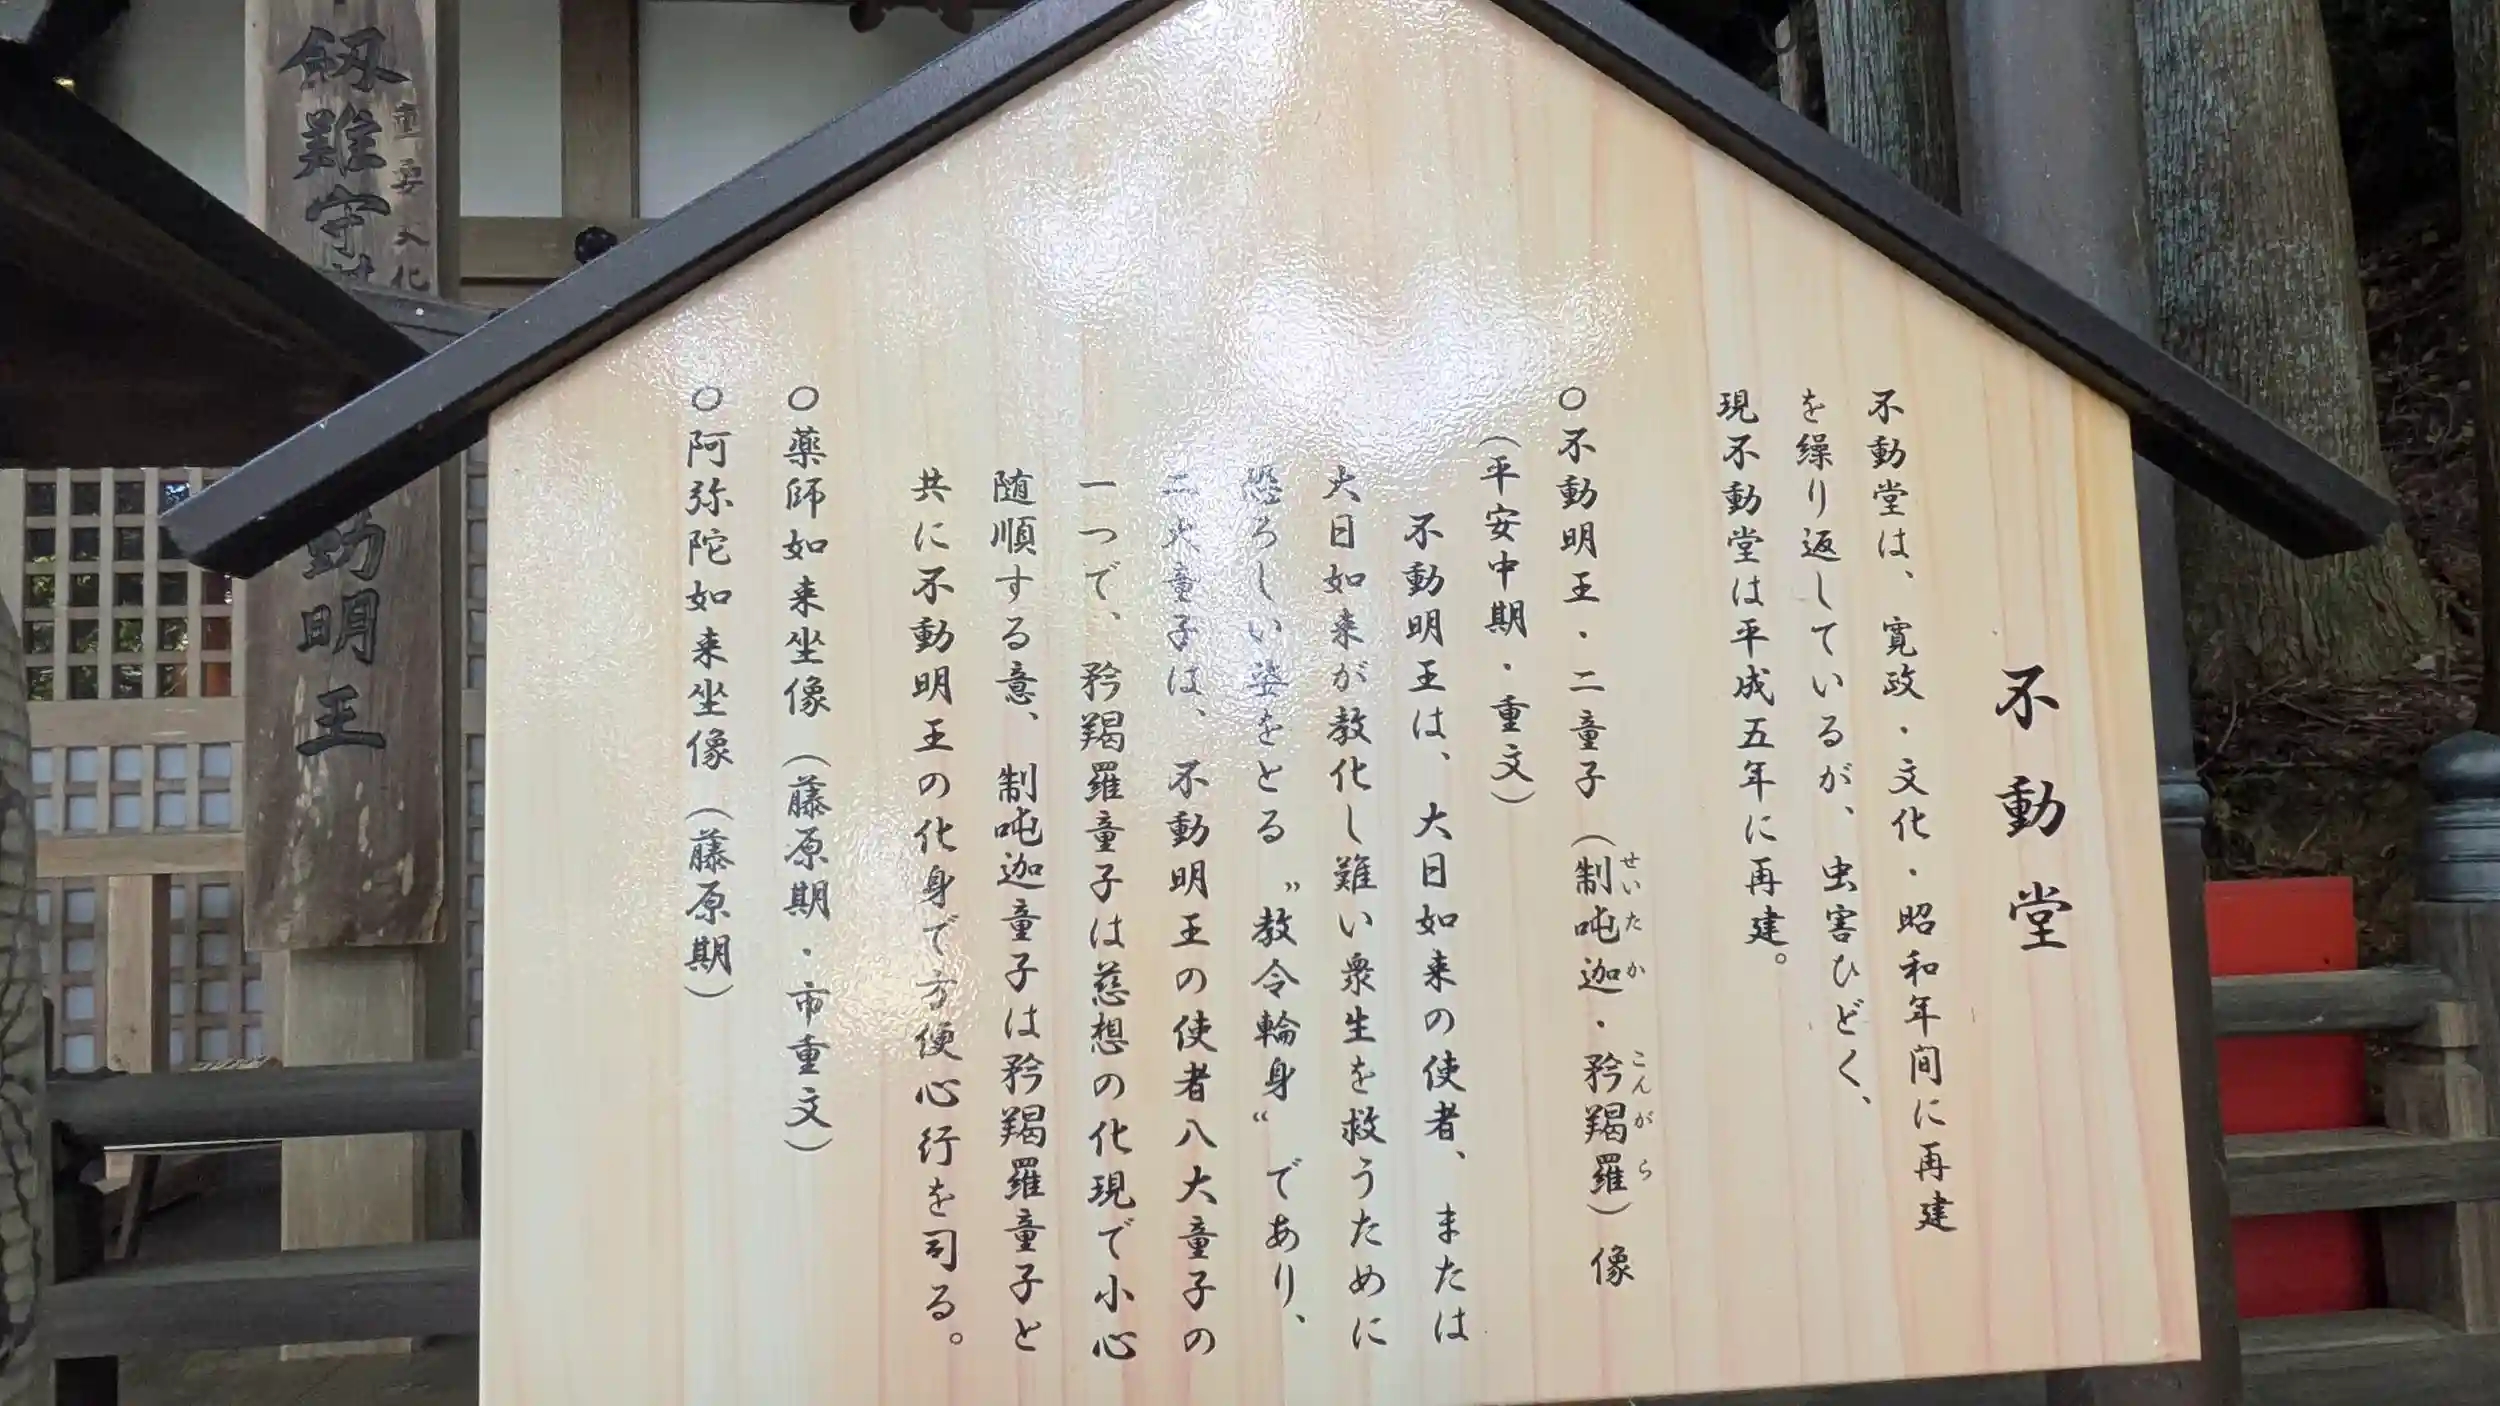 不動堂
不動堂は、寛政・文化・昭和年间に再建
を繰り返しているが、虫害ひどく、
現不動堂は平成五年に再建。
○不動明王・二童子（制吨迦・矜羯羅）像
せいたか
こんがら
（平安中期・重文）
不動明王は、大日如来の使者、または
大日如来が教化し難い衆生を救うために
恐ろしい姿をとる〝教令輪身〟であり、
二大童子は、不動明王の使者八大童子の
一つで、矜羯羅童子は慈想の化現で小心
随順する意、制吨迦童子は矜羯羅童子と
共に不動明王の化身で方便心行を司る。
○薬師如来坐像（藤原期・市重文）
○阿弥陀如来坐像（藤原期）
重要文化
剱難守
動明王